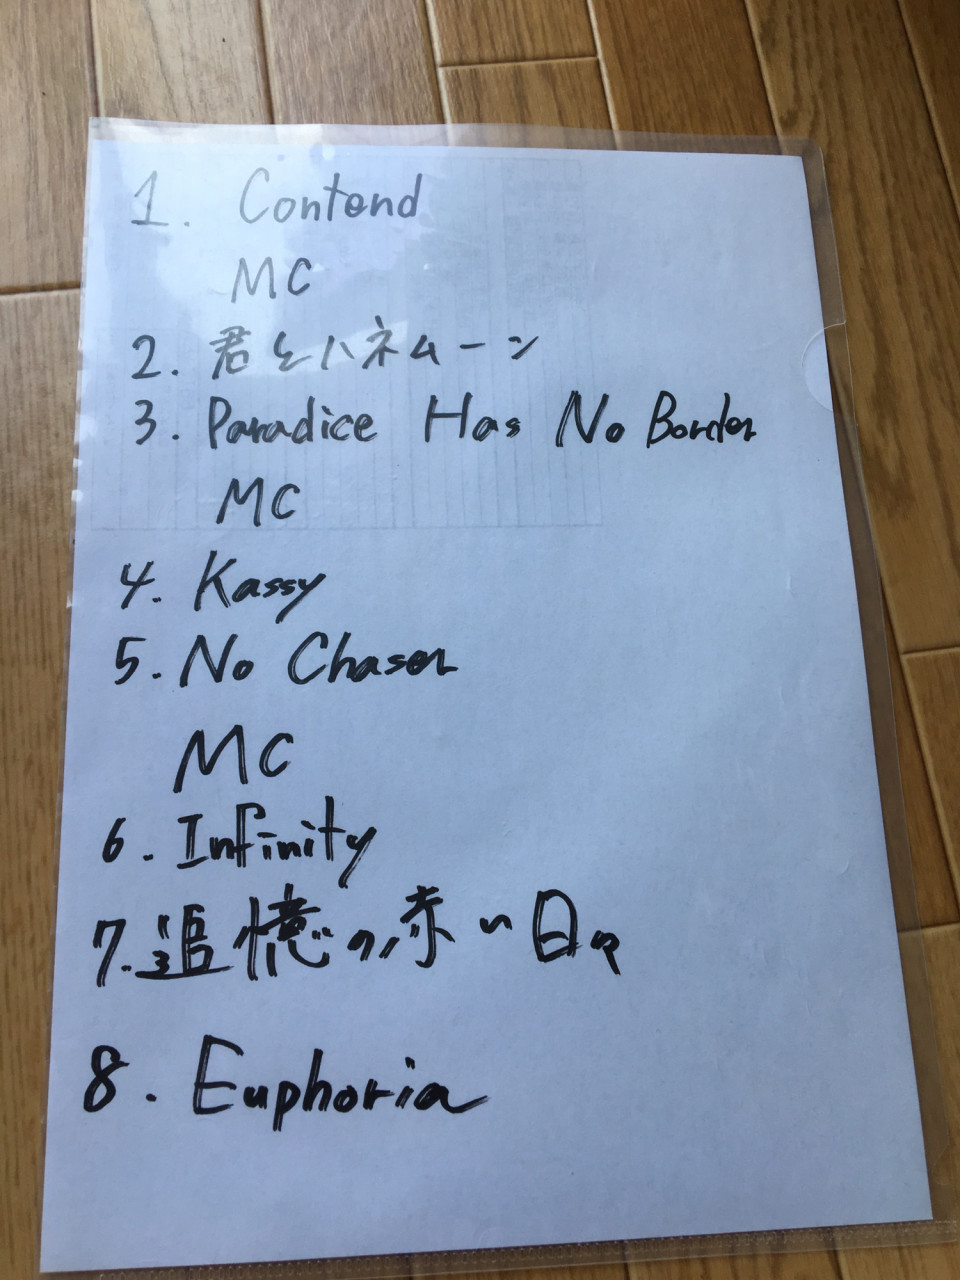 1. Contend
MC
2. 君とハネムーン
3. Paradice Has No Border
MC
4. Kassy
5. No Chaser
MC
6. Infinity
7. 追憶の赤い日々
8. Euphoria